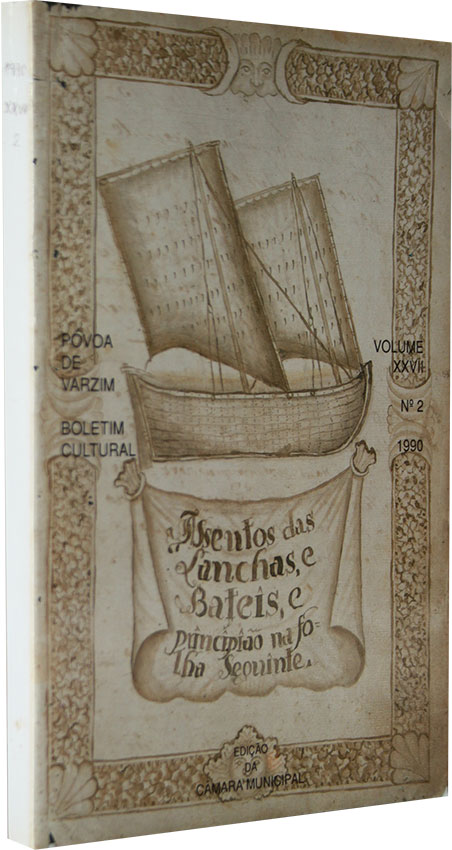 PÓVOA
DE
VARZIM
BOLETIM
CULTURAL
VOLUME
XXVII
Nº 2
1990
Asentos das
Lanchas, e
Bateis, e
principião na fo=
lha Seguinte.
EDIÇÃO
DA
CÂMARA MUNICIPAL